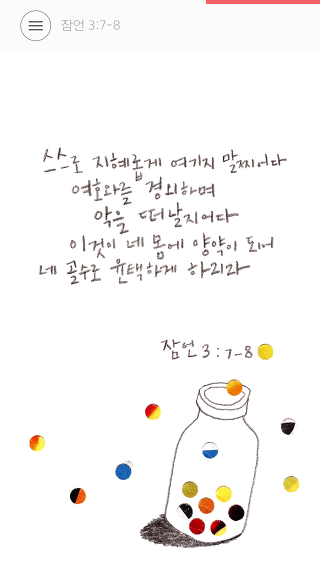 잠언 3:7-8
스스로 지혜롭게 여기지 말찌어다
여호와를 경외하며
악을 떠날지어다
이것이 네 몸에 양약이 되어
네 골수로 윤택하게 하리라
잠언 3:7-8